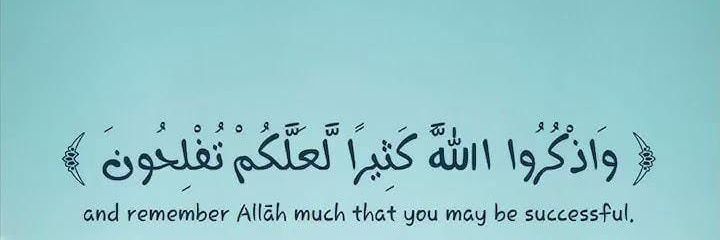 ﴿ وَاذْكُرُوا اللَّهَ كَثِيرًا لَّعَلَّكُمْ تُفْلِحُونَ ﴾
and remember Allāh much that you may be successful.